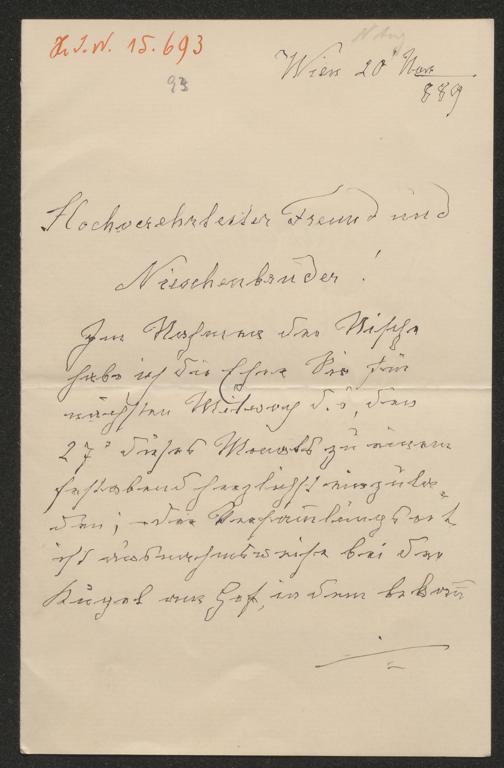 H.I.N. 15.693
93
Wien 20 Nov
889
Hochverehrtester Freund und
Nischenbruder!
Im Nahmen der Nische
habe ich die Ehre Sie für
nächsten Mitwoch d. i. den
27t dieses Monats zu einem
Festabend herzlichst einzula-
den; der Versammlungsort
ist ausnahmsweise bei der
Kugel am Hof, in dem bekann